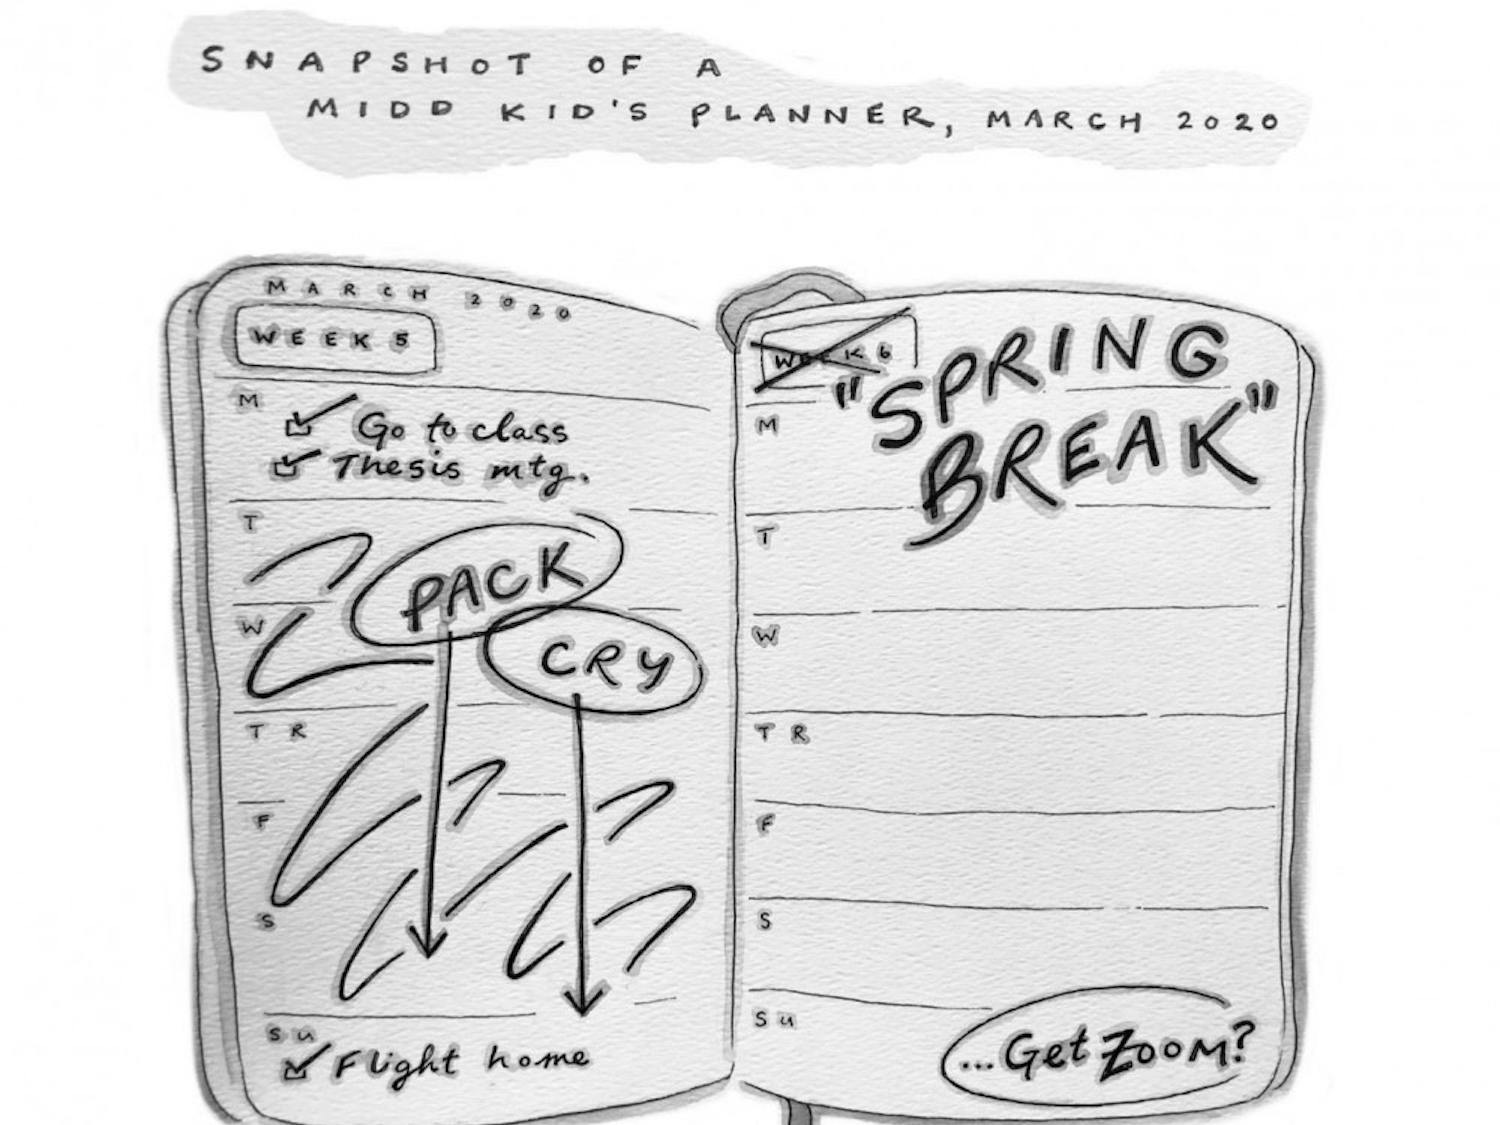 SNAPSHOT OF A
MIDD KID'S PLANNER, MARCH 2020
MARCH 2020
WEEK 5
M
Go to class
Thesis mtg.
T
PACK
W
CRY
T R
F
S
Su
Flight home
WEEK 6
"SPRING
BREAK"
M
T
W
T R
F
S
Su
...Get Zoom?